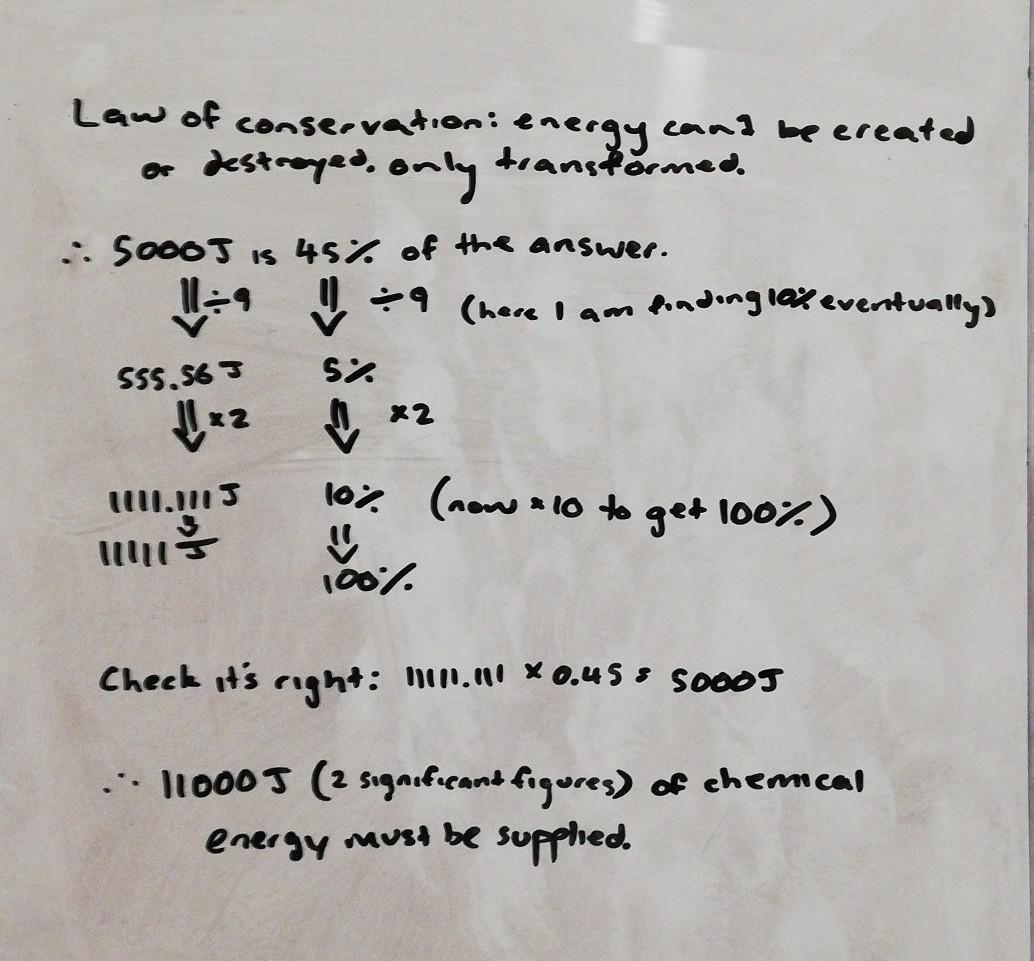 Law of conservation: energy can't be created
or destroyed. only transformed.
∴ 5000J is 45% of the answer.
⇓÷9 ⇓ ÷9 (here I am finding 10% eventually)
555.56J 5%
⇓×2 ⇓ ×2
1111.111J 10% (now ×10 to get 100%)
⇓ ⇓
11111J 100%
Check it's right: 11111.111 × 0.45 = 5000J
∴ 11000J (2 significant figures) of chemical
energy must be supplied.